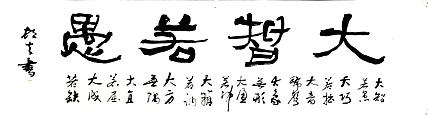 大智若愚
大智
若愚
大巧
若拙
大音
希聲
大象
無形
大盈
若沖
大辯
若訥
大方
無隅
大直
若屈
大成
若缺
書